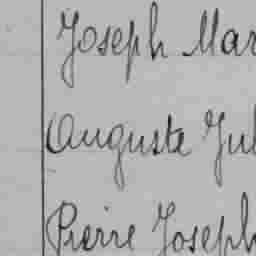 Joseph Mar
Auguste Jul
Pierre Joseph